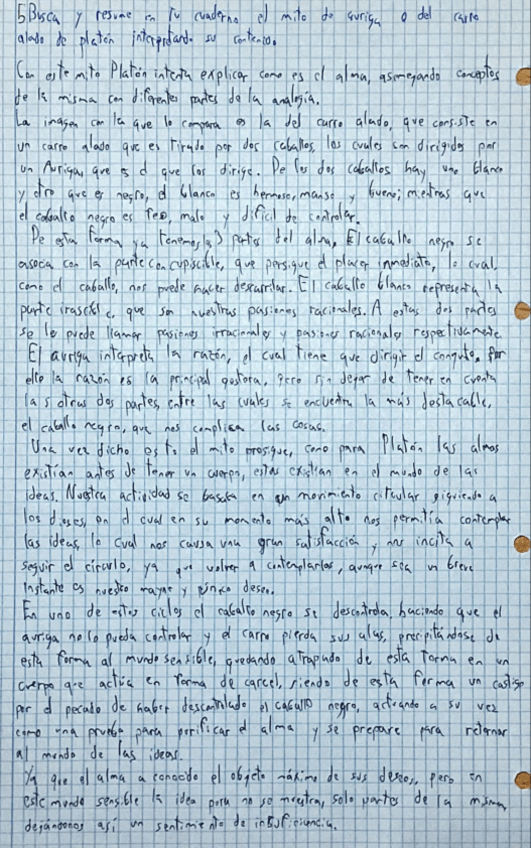 5 Busca y resume en tu cuaderno el mito de auriga o del carro
alado de platón interpretando su contenido.
Con este mito Platón intenta explicar como es el alma, asemejando conceptos
de la misma con diferentes partes de la analogía.
La imagen con la que lo compara es la del carro alado, que consiste en
un carro alado que es tirado por dos caballos, los cuales son dirigidos por
un Auriga, que es el que los dirige. De los dos caballos hay uno blanco
y otro que es negro, el blanco es hermoso, manso y bueno; mientras que
el caballo negro es feo, malo y dificil de controlar.
De esta forma ya tenemos las 3 partes del alma, El caballo negro se
asocia con la parte concupiscible, que persigue el placer inmediato, lo cual,
como el caballo, nos puede hacer descarrilar. El caballo blanco representa la
parte irascible, que son nuestras pasiones racionales. A estas dos partes
se le puede llamar pasiones irracionales y pasiones racionales respectivamente
El auriga interpreta la razón, el cual tiene que dirigir el conjunto, por
ello la razón es la principal gestora, pero sin dejar de tener en cuenta
las otras dos partes, entre las cuales se encuentra la más destacable,
el caballo negro, que nos complica las cosas.
Una vez dicho esto el mito prosigue, como para Platón las almas
existían antes de tener un cuerpo, estas existían en el mundo de las
ideas. Nuestra actividad se basaba en un movimiento circular siguiendo a
los dioses, en el cual en su momento más alto nos permitía contemplar
las ideas, lo cual nos causa una gran satisfacción y nos incita a
seguir el círculo, ya que volver a contemplarlas, aunque sea un breve
instante es nuestro mayor y único deseo.
En uno de estos ciclos el caballo negro se descontrola, haciendo que el
auriga no lo pueda controlar y el carro pierda sus alas, precipitándose de
esta forma al mundo sensible, quedando atrapado de esta forma en un
cuerpo que actúa en forma de carcel, siendo de esta forma un castigo
por el pecado de haber descontrolado el caballo negro, actuando a su vez
como una prueba para purificar el alma y se prepare para retornar
al mundo de las ideas.
Ya que el alma a conocido el objeto máximo de sus deseos, pero en
este mundo sensible la idea pura no se muestra, solo partes de la misma
dejándonos así un sentimiento de insuficiencia.